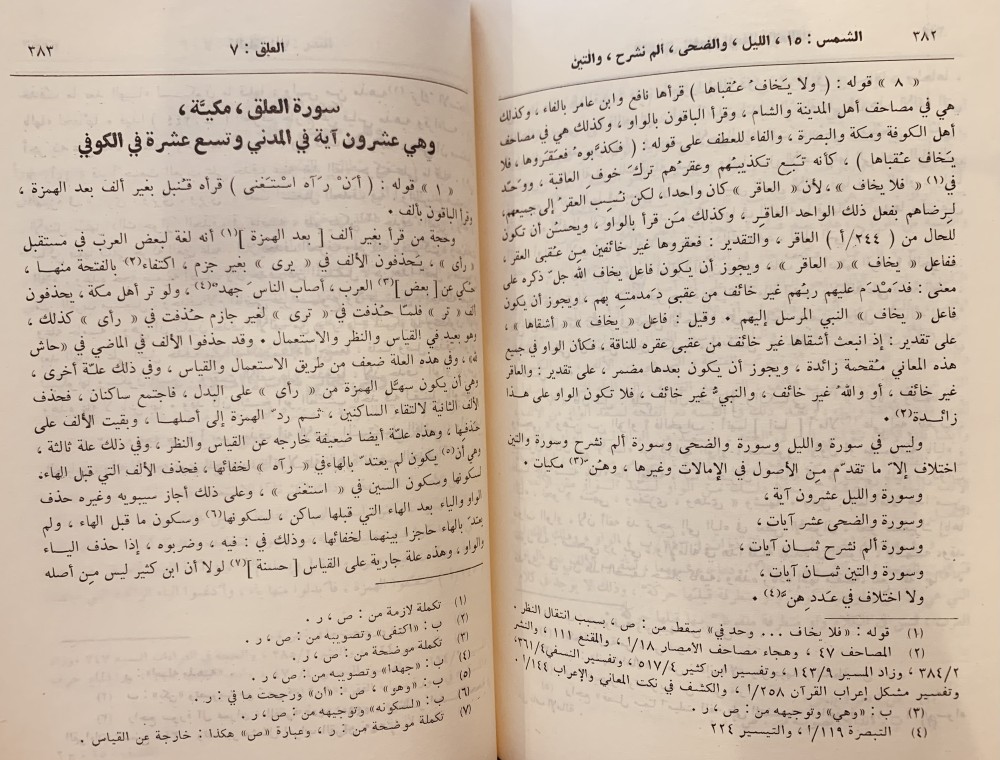 ٣٨٢
الشمس : ١٥ ، الليل ، والضحى ، ألم نشرح ، والتين
« ٨ » قوله : ( ولا يَخافُ عُقباها ) قرأها نافع وابن عامر بالفاء ، وكذلك
هي في مصاحف أهل المدينة والشام ، وقرأ الباقون بالواو ، وكذلك هي في مصاحف
أهل الكوفة ومكة والبصرة ، والفاء للعطف على قوله : ( فكذَّبوه فعَقَروها ، فلا
يَخاف عُقباها ) ، كأنه تَبِع تكذيبُهم وعقرهم تركَ خوفِ العاقبة ، ووحّد
في(١) « فلا يخاف » ، لأن « العاقر » كان واحدا ، لكن نُسِب العقر إلى جميعهم،
لرضاهم بفعل ذلك الواحد العاقِرِ ، وكذلك مَن قرأ بالواو ، ويحسُن أن تكون
للحال من ( ٢٤٤/أ ) العاقر ، والتقدير : فعقروها غير خائفين مِن عُقبى العقر ،
ففاعل « يخاف » « العاقر » ، ويجوز أن يكون فاعل يخاف الله جلّ ذكره على
معنى : فدَمْدَم عليهم ربُّهم غير خائف من عقبى دَمدمتِه بهم ، ويجوز أن يكون
فاعل « يخاف » النبي المرسل إليهم . وقيل : فاعل « يخاف » « أشقاها » ،
على تقدير : إذ انبعث أشقاها غير خائف من عقبى عقره للناقة ، فكأن الواو في جميع
هذه المعاني مُقحمة زائدة ، ويجوز أن يكون بعدها مضمر ، على تقدير : والعاقر
غير خائف ، أو واللهُ غير خائف ، والنبيُّ غير خائف ، فلا تكون الواو على هذا
زائدة(٢) .
وليس في سورة والليل وسورة والضحى وسورة ألم نشرح وسورة والتين
اختلاف إلاّ ما تقدّم مِن الأصول في الإمالات وغيرها ، وهُنّ(٣) مكيات .
وسورة والليل عشرون آية ،
وسورة والضحى عشر آيات ،
وسورة ألم نشرح ثمان آيات ،
وسورة والتين ثمان آيات ،
ولا اختلاف في عَدَدِهن(٤) .
(١) قوله : «فلا يخاف ... وحد في» سقط من : ص ، بسبب انتقال النظر .
(٢) المصاحف ٤٧ ، وهجاء مصاحف الأمصار ١٨/أ ، والمقنع ١١١ ، والنشر
٣٨٤/٢ ، وزاد المسير ١٤٣/٩ ، وتفسير ابن كثير ٥١٧/٤ ، وتفسير النسفي ٣٦١/٤،
وتفسير مشكل إعراب القرآن ٢٥٨/أ ، والكشف في نكت المعاني والإعراب ١٤٤/أ .
(٣) ب : «وهي» وتوجيهه من : ص ، ر .
(٤) التبصرة ١١٩/أ ، والتيسير ٢٢٤
العلق : ٧
٣٨٣
سورة العلق ، مكيّة ،
وهي عشرون آية في المدني وتسع عشرة في الكوفي
« ١ » قوله : ( أنْ رَآه اسْتَغنى ) قرأه قُنبل بغير ألف بعد الهمزة ،
وقرأ الباقون بألف .
وحجة من قرأ بغير ألف [ بعد الهمزة ](١) أنه لغة لبعض العرب في مستقبل
« رأى » ، يَحذفون الألف في « يرى » بغير جزم ، اكتفاء(٢) بالفتحة منها ،
حُكي عن [ بعض ](٣) العرب ، أصاب الناسَ جهد(٤) ، ولو تر أهل مكة ، يحذفون
ألف « تر » فلمّا حُذفت في « ترى » لغير جازم حُذفت في « رأى » كذلك ،
وهو بعيد في القياس والنظر والاستعمال . وقد حذفوا الألف في الماضي في «حاش
لله» ، وفي هذه العلة ضعف من طريق الاستعمال والقياس ، وفي ذلك علّة أخرى ،
وهي أن يكون سهَّل الهمزة من « رأى » على البدل ، فاجتمع ساكنان ، فحذف
الألف الثانية لالتقاء الساكنين ، ثم ردّ الهمزة إلى أصلها ، وبقيت الألف على
حذفها ، وهذه علّة أيضا ضعيفة خارجه عن القياس والنظر ، وفي ذلك علة ثالثة ،
وهي أن(٥) يكون لم يعتدّ بالهاء في « رآه » لخفائها ، فحذف الألف التي قبل الهاء،
لسكونها وسكون السين في « استغنى » ، وعلى ذلك أجاز سيبويه وغيره حذف
الواو والياء بعد الهاء التي قبلها ساكن ، لسكونها(٦) وسكون ما قبل الهاء ، ولم
يعتدّ بالهاء حاجزا بينهما لخفائها ، وذلك في : فيه ، وضربوه ، إذا حذف الياء
والواو ، وهذه علة جارية على القياس [ حسنة ](٧) لولا أن ابن كثير ليس مِن أصله
(١) تكملة لازمة من : ص ، ر .
(٢) ب : «اكتفى» وتصويبه من : ص ، ر .
(٣) تكملة موضحة من : ص ، ر .
(٤) ب : «جهدا» وتصويبه من : ص ، ر .
(٥) ب : «وهو» ، ص : «ان» ورجحت ما في : ر .
(٦) ب : «لسكونه» وتوجيهه من : ص ، ر .
(٧) تكملة موضحة من : ر ، وعبارة «ص» هكذا : خارجة عن القياس .